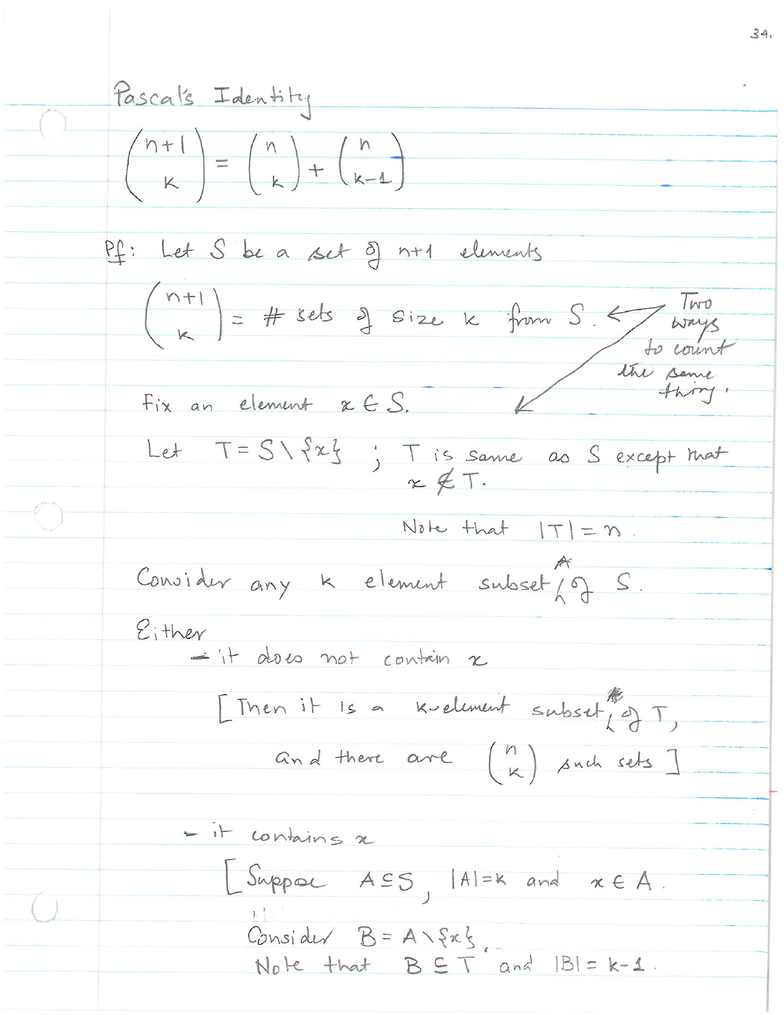 34.
Pascal's Identity
(n+1 k) = (n k) + (n k-1)
Pf: Let S be a set of n+1 elements
(n+1 k) = # sets of size k from S.
Two
ways
to count
the same
thing.
Fix an element x ∈ S.
Let T = S \ {x} ; T is same as S except that
x ∉ T.
Note that |T| = n.
Consider any k element subset A of S.
Either
- it does not contain x
[Then it is a k-element subset of T,
and there are (n k) such sets]
- it contains x
[Suppose A ⊆ S, |A|=k and x ∈ A.
Consider B = A \ {x}.
Note that B ⊆ T and |B| = k-1.